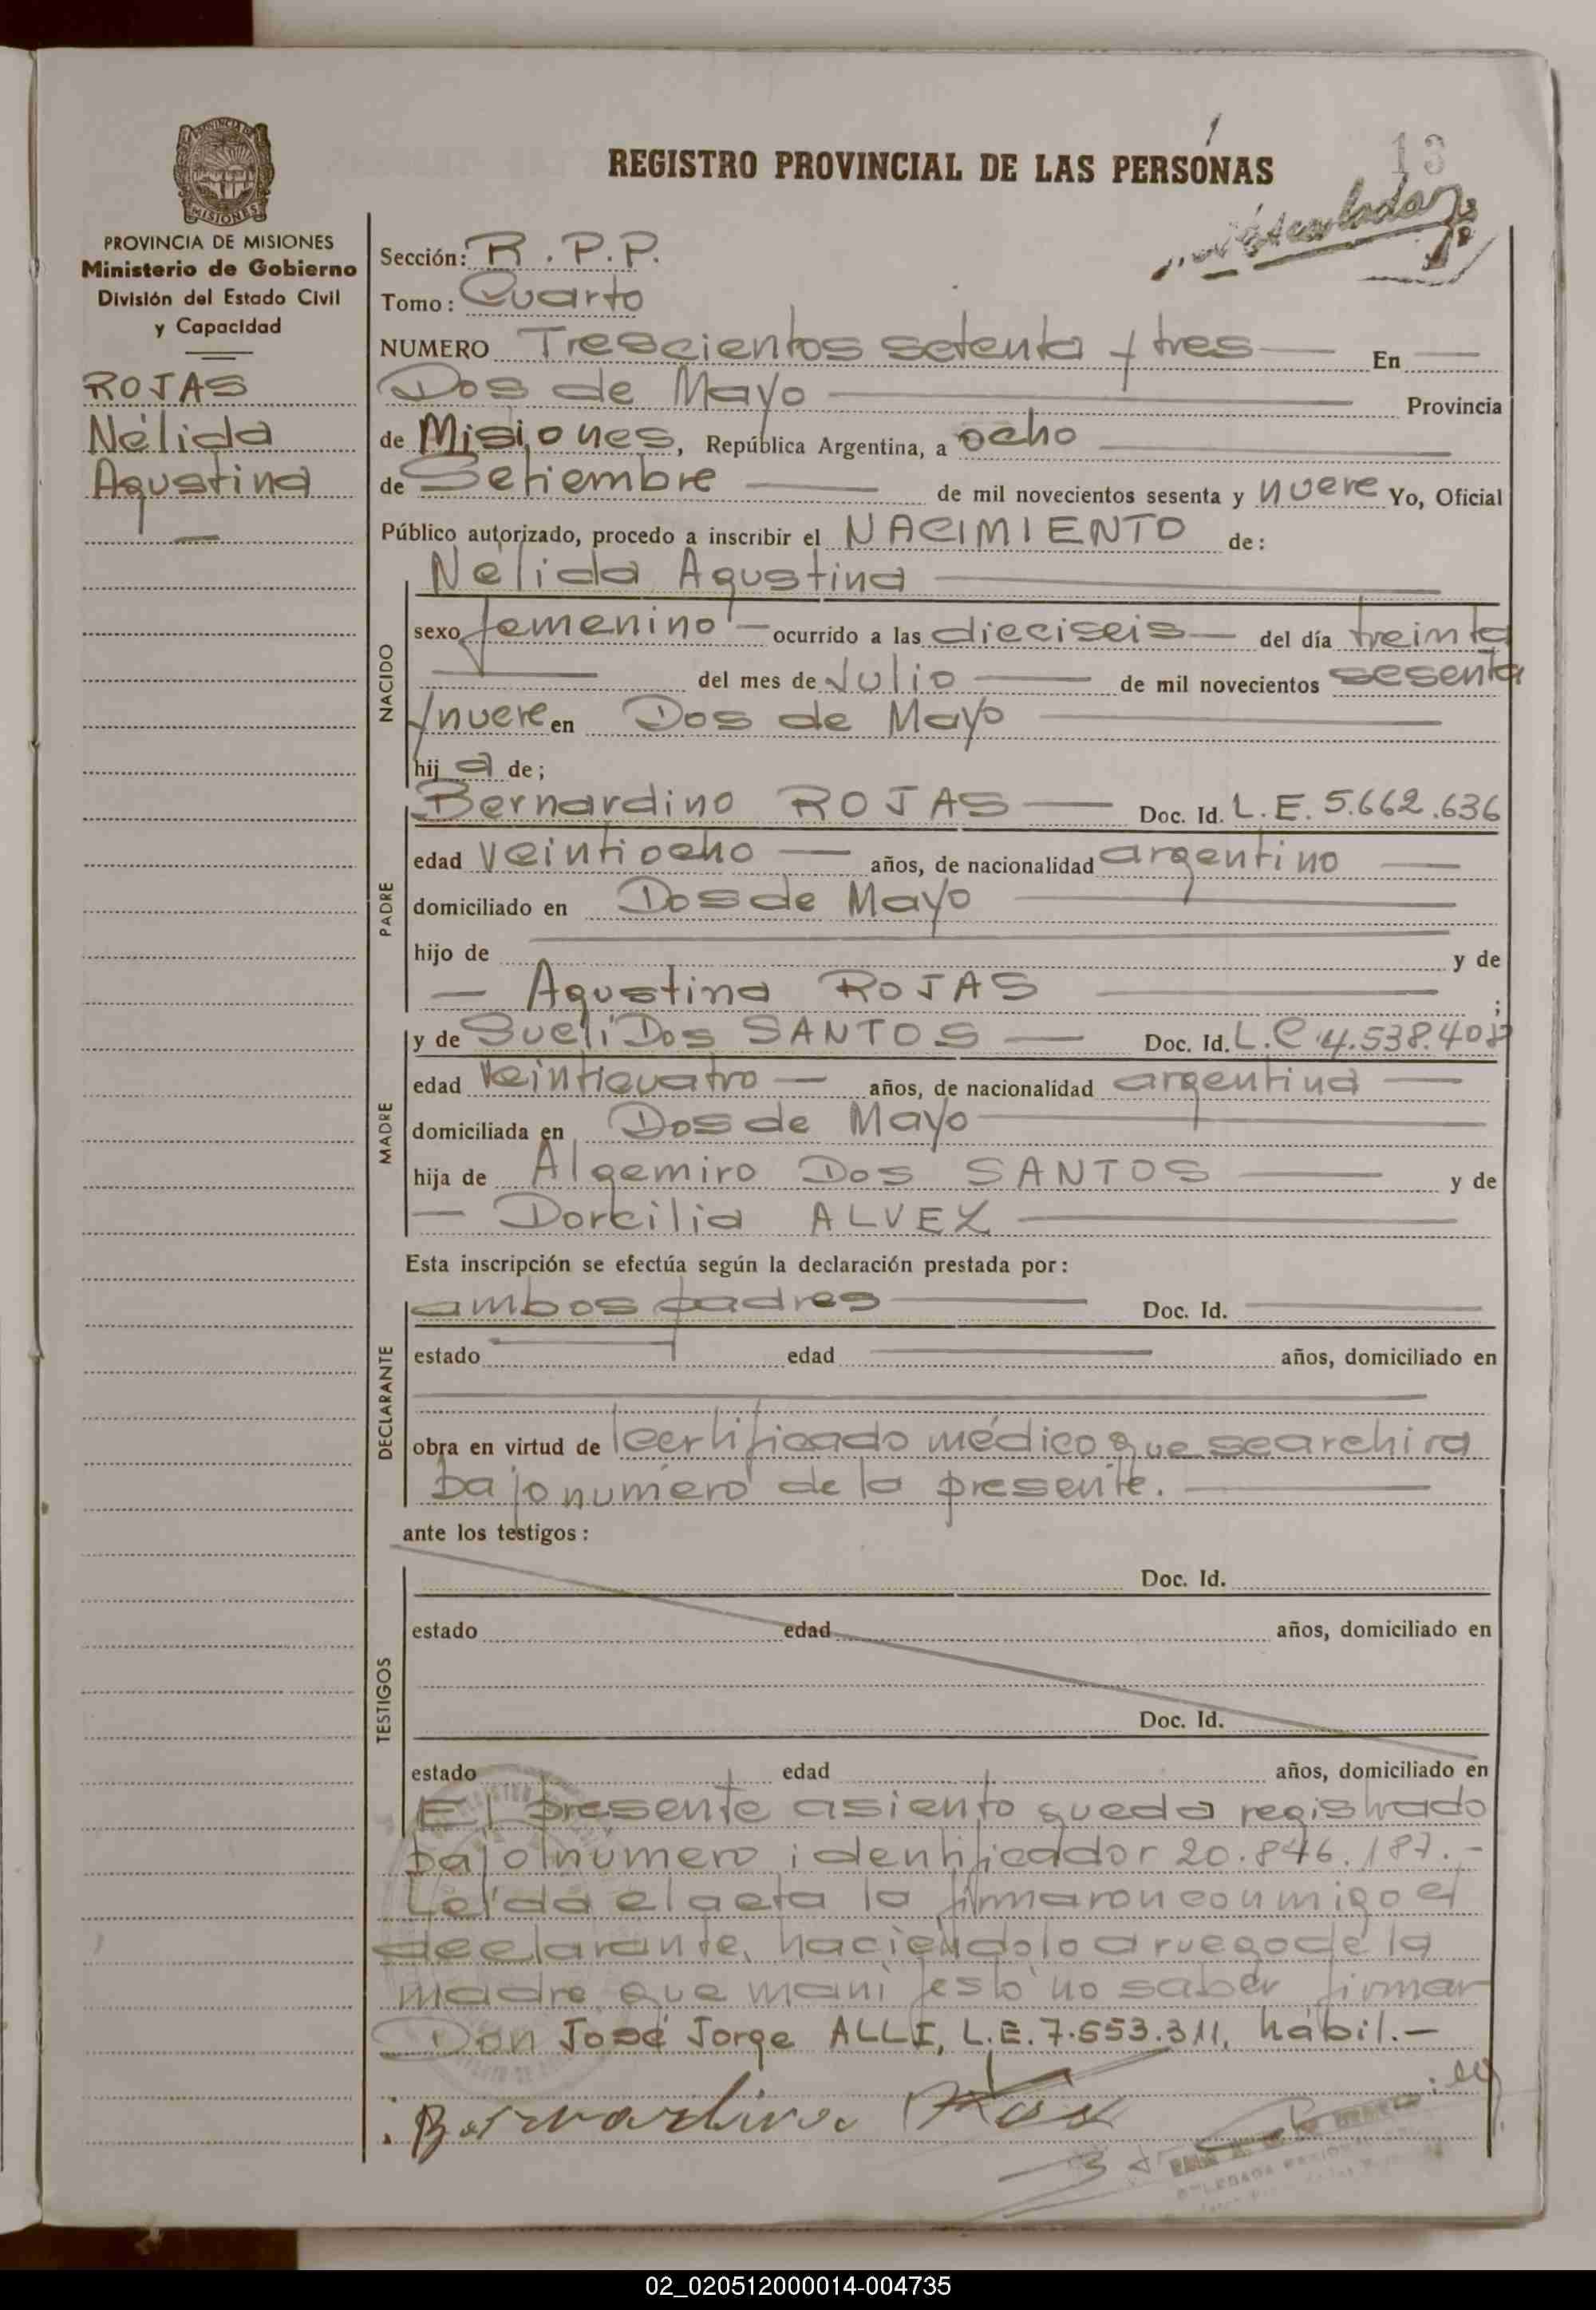 13
REGISTRO PROVINCIAL DE LAS PERSONAS
PROVINCIA DE MISIONES
Ministerio de Gobierno
División del Estado Civil
y Capacidad
ROJAS
Nélida
Agustina
Sección: R.P.P.
Tomo: Cuarto
NUMERO Trescientos setenta y tres En
Dos de Mayo Provincia
de Misiones, República Argentina, a ocho
de Setiembre de mil novecientos sesenta y nueve Yo, Oficial
Público autorizado, procedo a inscribir el NACIMIENTO de:
Nélida Agustina
NACIDO
sexo femenino ocurrido a las dieciseis del día treinta
del mes de Julio de mil novecientos sesenta
y nueve en Dos de Mayo
hij a de;
PADRE
Bernardino ROJAS Doc. Id. L.E. 5.662.636
edad veintiocho años, de nacionalidad argentino
domiciliado en Dos de Mayo
hijo de y de
Agustina ROJAS ;
MADRE
y de Sueli Dos SANTOS Doc. Id. L.C 4.538.408
edad veinticuatro años, de nacionalidad argentina
domiciliada en Dos de Mayo
hija de Algemiro Dos SANTOS y de
Dorcilia ALVEZ
Esta inscripción se efectúa según la declaración prestada por:
DECLARANTE
ambos padres Doc. Id.
estado edad años, domiciliado en
obra en virtud de certificado médico que se archiva
bajo numero de la presente.
ante los testigos:
TESTIGOS
Doc. Id.
estado edad años, domiciliado en
Doc. Id.
estado edad años, domiciliado en
El presente asiento queda registrado
bajo número identificador 20.846.187.-
Leída el acta la firmaron conmigo el
declarante, haciéndolo a ruego de la
madre que manifestó no saber firmar
Don José Jorge ALLI, L.E. 7.553.311, hábil.-
Bernardino Rojas
02_020512000014-004735